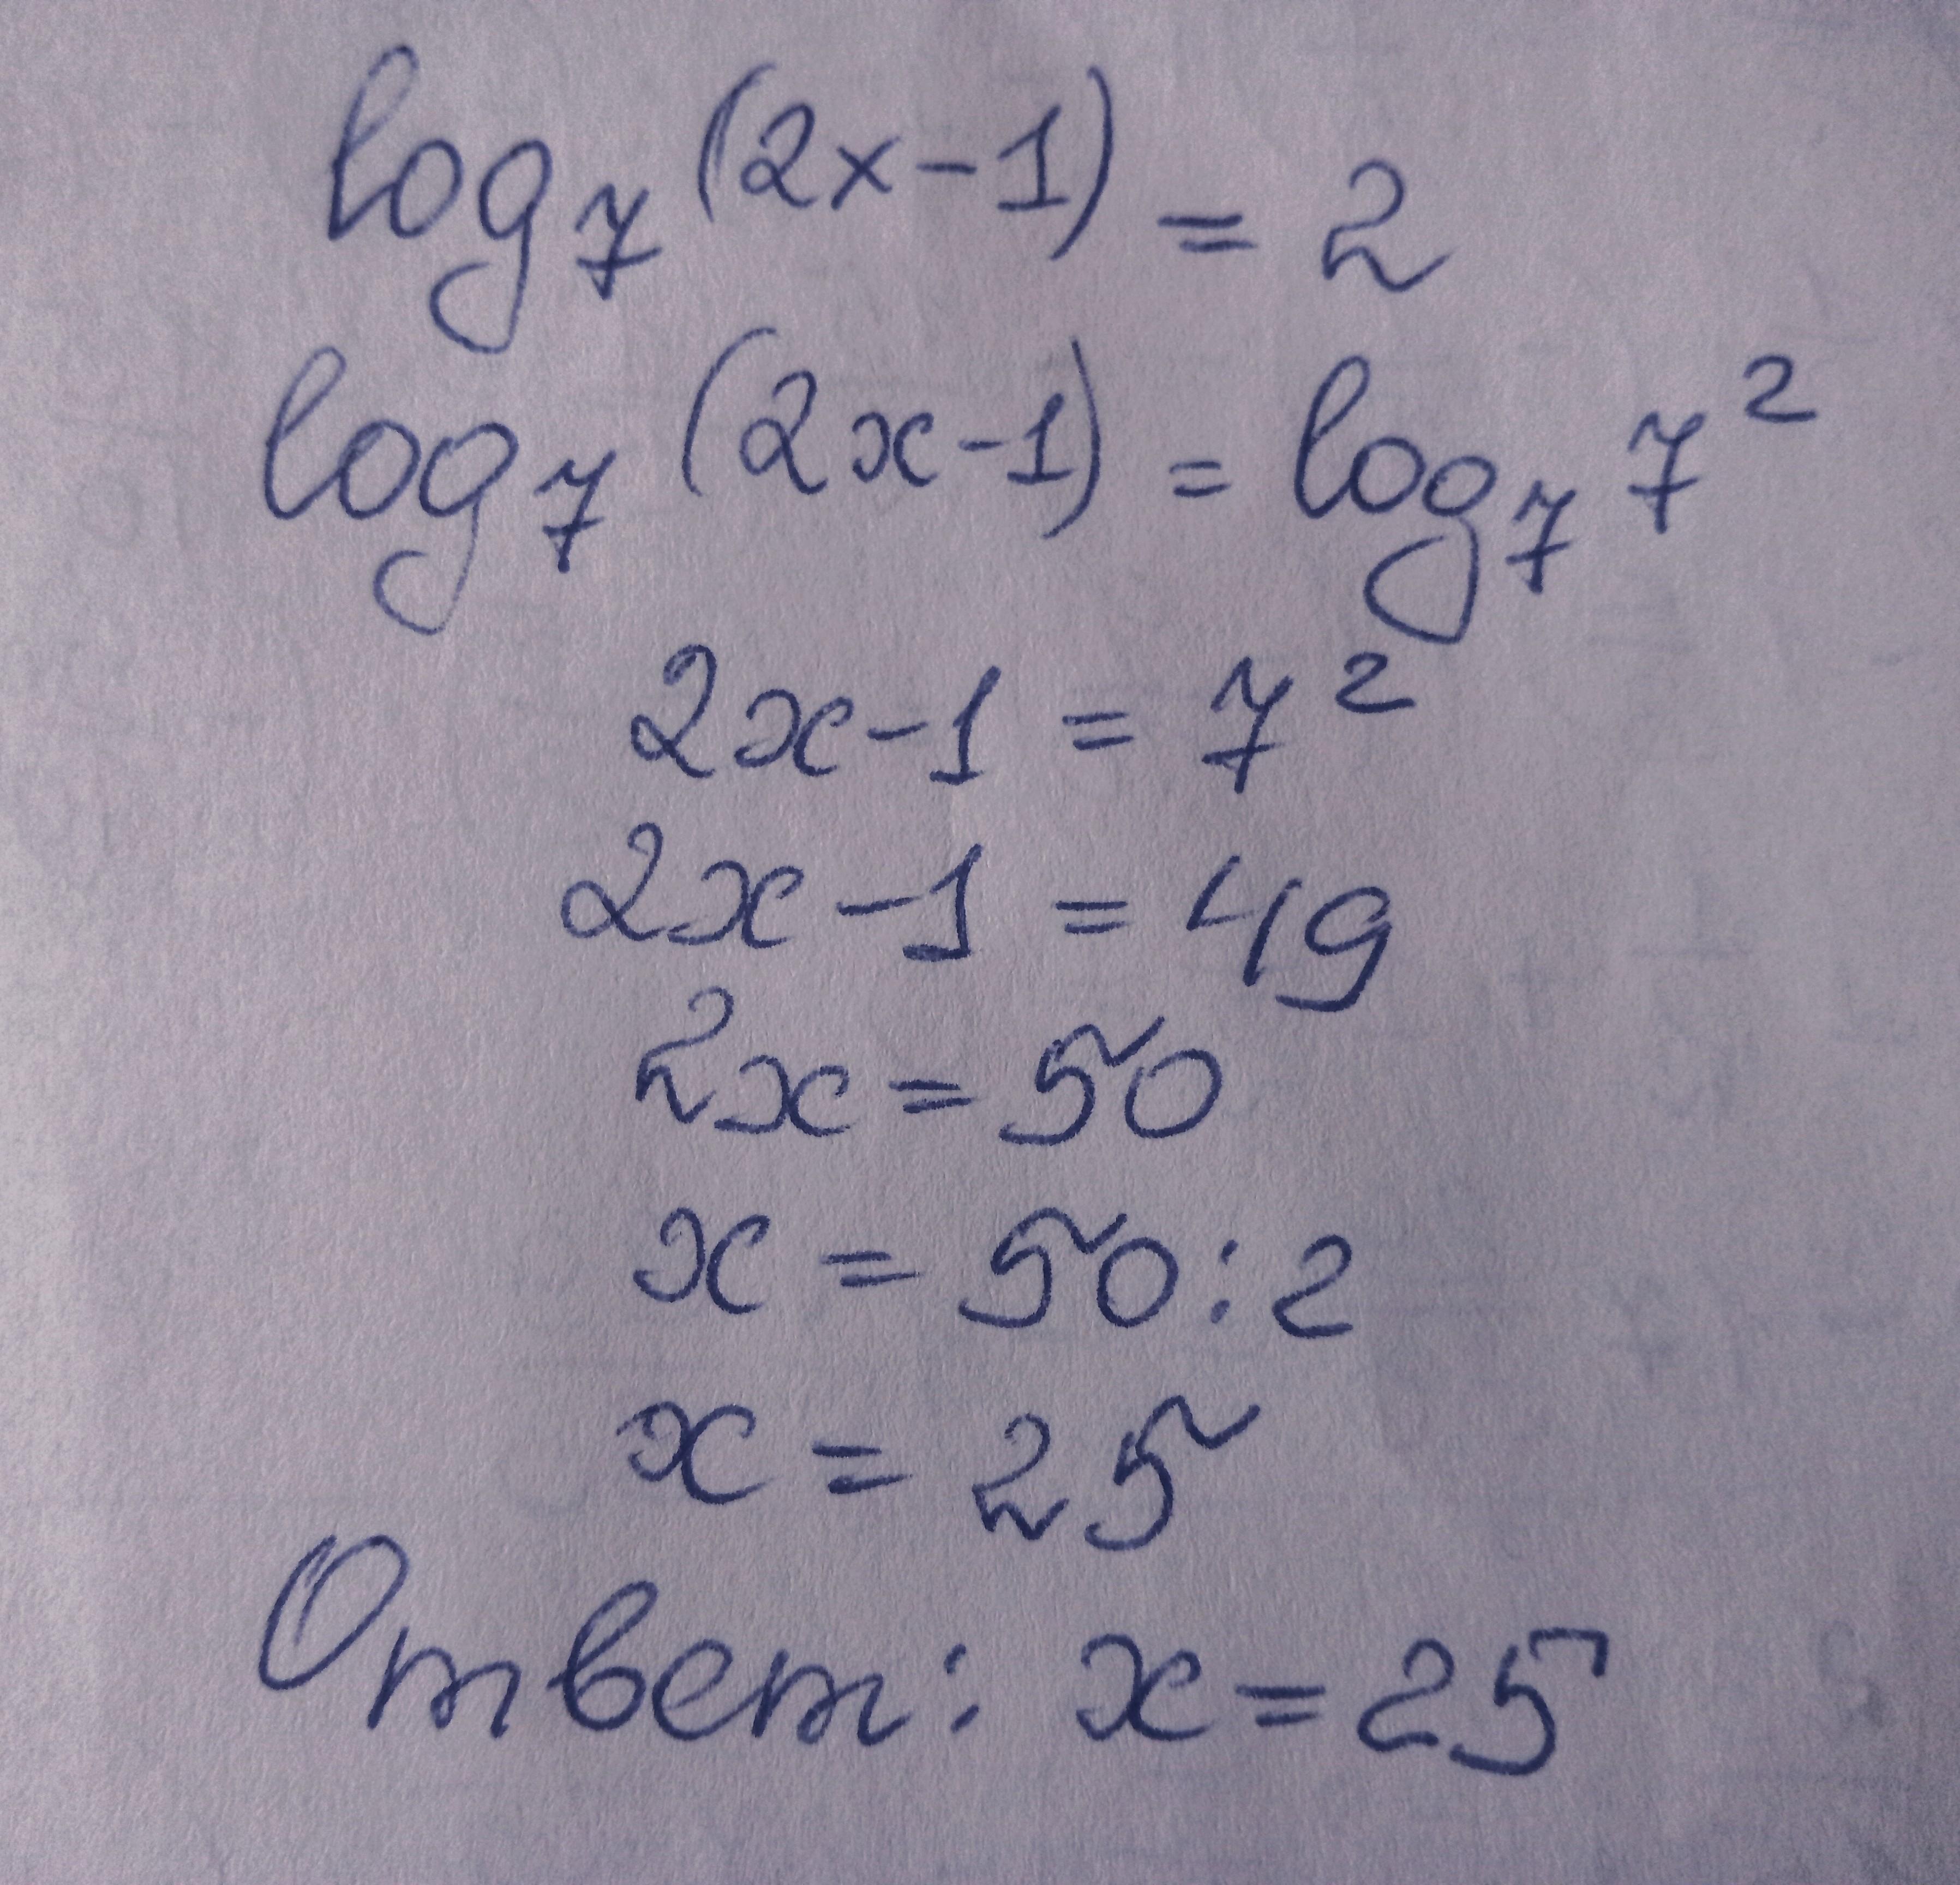 log₇(2x-1) = 2
log₇(2x-1) = log₇7²
2x-1 = 7²
2x-1 = 49
2x = 50
x = 50:2
x = 25
Ответ: x = 25